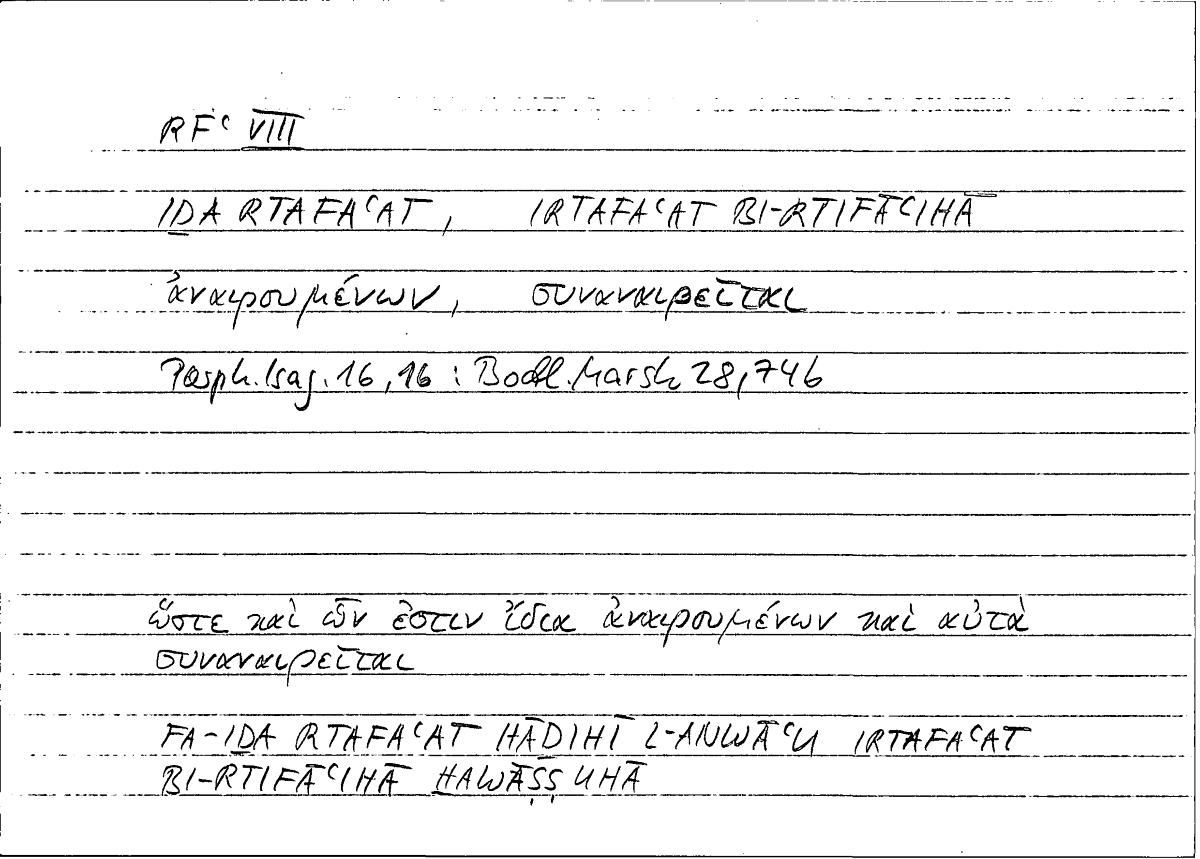 RFʿ VIII
IḎA RTAFAʿAT, IRTAFAʿAT BI-RTIFĀʿIHĀ
ἀναιρουμένων, συναναιρεῖται
Porph. Isag. 16,16 : Bodl. Marsh 28,74b
ὥστε καὶ ὧν ἐστιν ἴδια ἀναιρουμένων καὶ αὐτὰ
συναναιρεῖται
FA-IḎA RTAFAʿAT HĀḎIHĪ L-ANWĀʿU IRTAFAʿAT
BI-RTIFĀʿIHĀ ḪAWĀṢṢUHĀ